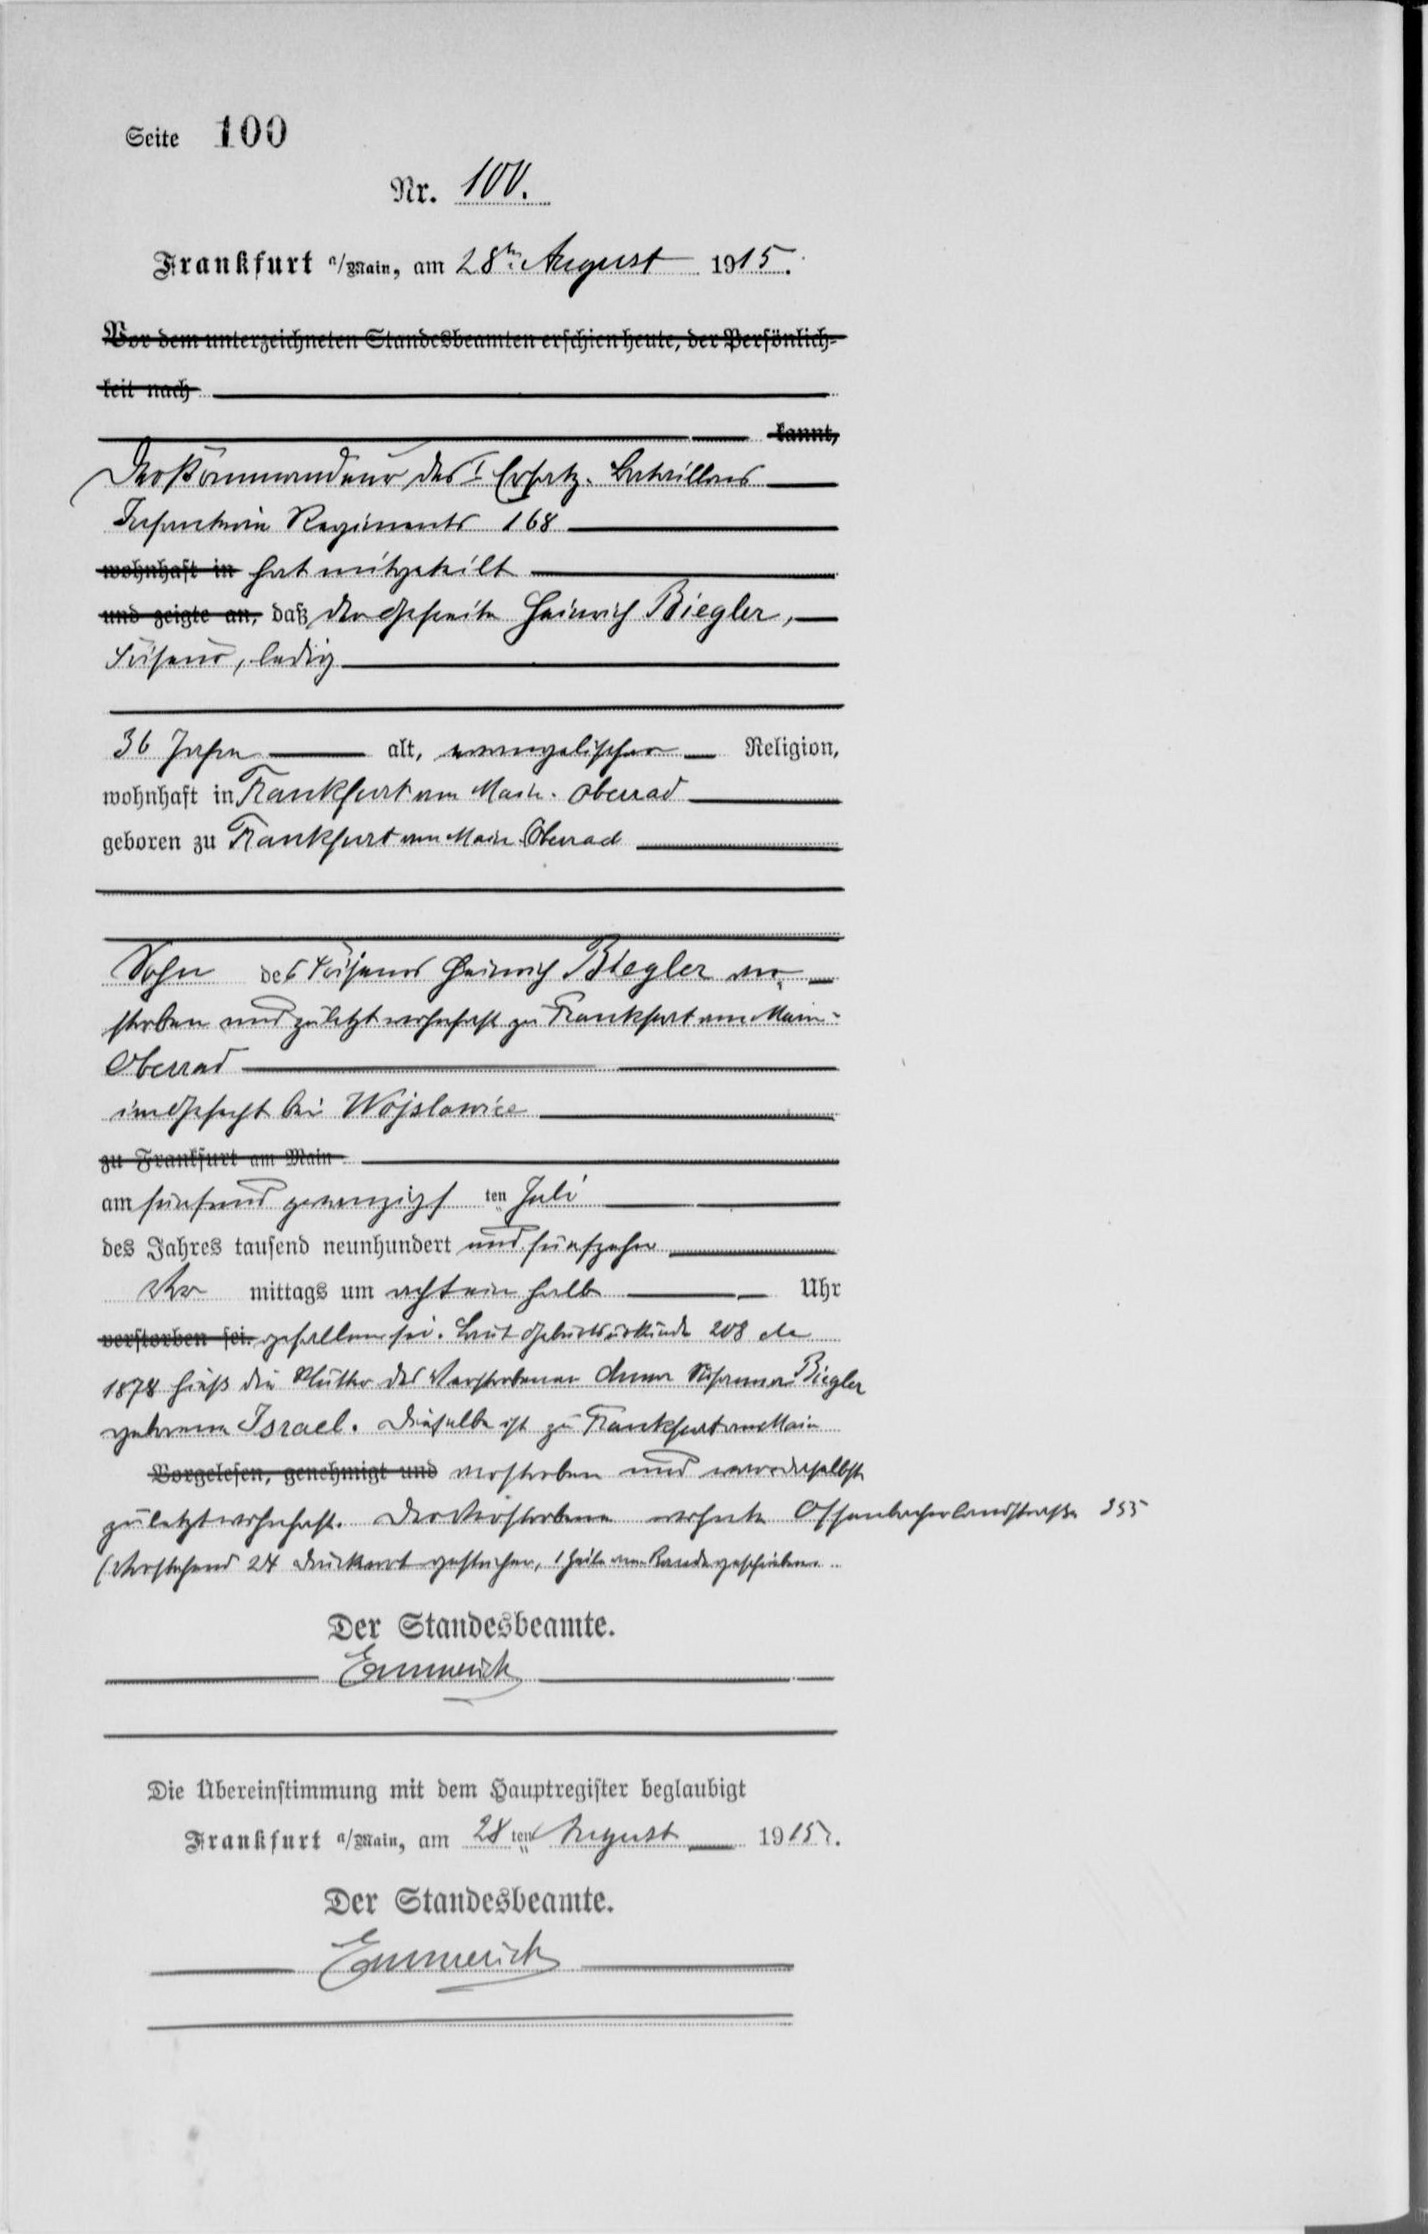 Seite 100
Nr. 100.
Frankfurt a/Main, am 28ten August 1915.
Vor dem unterzeichneten Standesbeamten erschien heute, der Persönlich-
keit nach
kannt,
Der Kommandeur des I Ersatz-Bataillons
Infanterie Regiments 168
wohnhaft in hat mitgeteilt
und zeigte an, daß der Gefreite Heinrich Biegler,
Friseur, ledig
36 Jahre alt, evangelischer Religion,
wohnhaft in Frankfurt am Main-Oberrad
geboren zu Frankfurt am Main-Oberrad
Sohn des Friseurs Heinrich Biegler ver-
storben und zuletzt wohnhaft zu Frankfurt am Main-
Oberrad
im Gefecht bei Wojslawice
zu Frankfurt am Main
am fünfundzwanzigsten Juli
des Jahres tausend neunhundert und fünfzehn
Vor mittags um acht ein halb Uhr
verstorben sei. gefallen sei. Laut Geburtsurkunde 208 de
1878 hieß die Mutter des Verstorbenen Anna Susanna Biegler
geborene Israel. Dieselbe ist zu Frankfurt am Main
Vorgelesen, genehmigt und verstorben und war daselbst
zuletzt wohnhaft. Der Verstorbene wohnte Offenbacherlandstraße 355
(Vorstehend 24 Druckwort gestrichen, 1 Zeile am Rande geschrieben.
Der Standesbeamte.
Emmerich
Die Übereinstimmung mit dem Hauptregister beglaubigt
Frankfurt a/Main, am 28ten August 1915.
Der Standesbeamte.
Emmerich